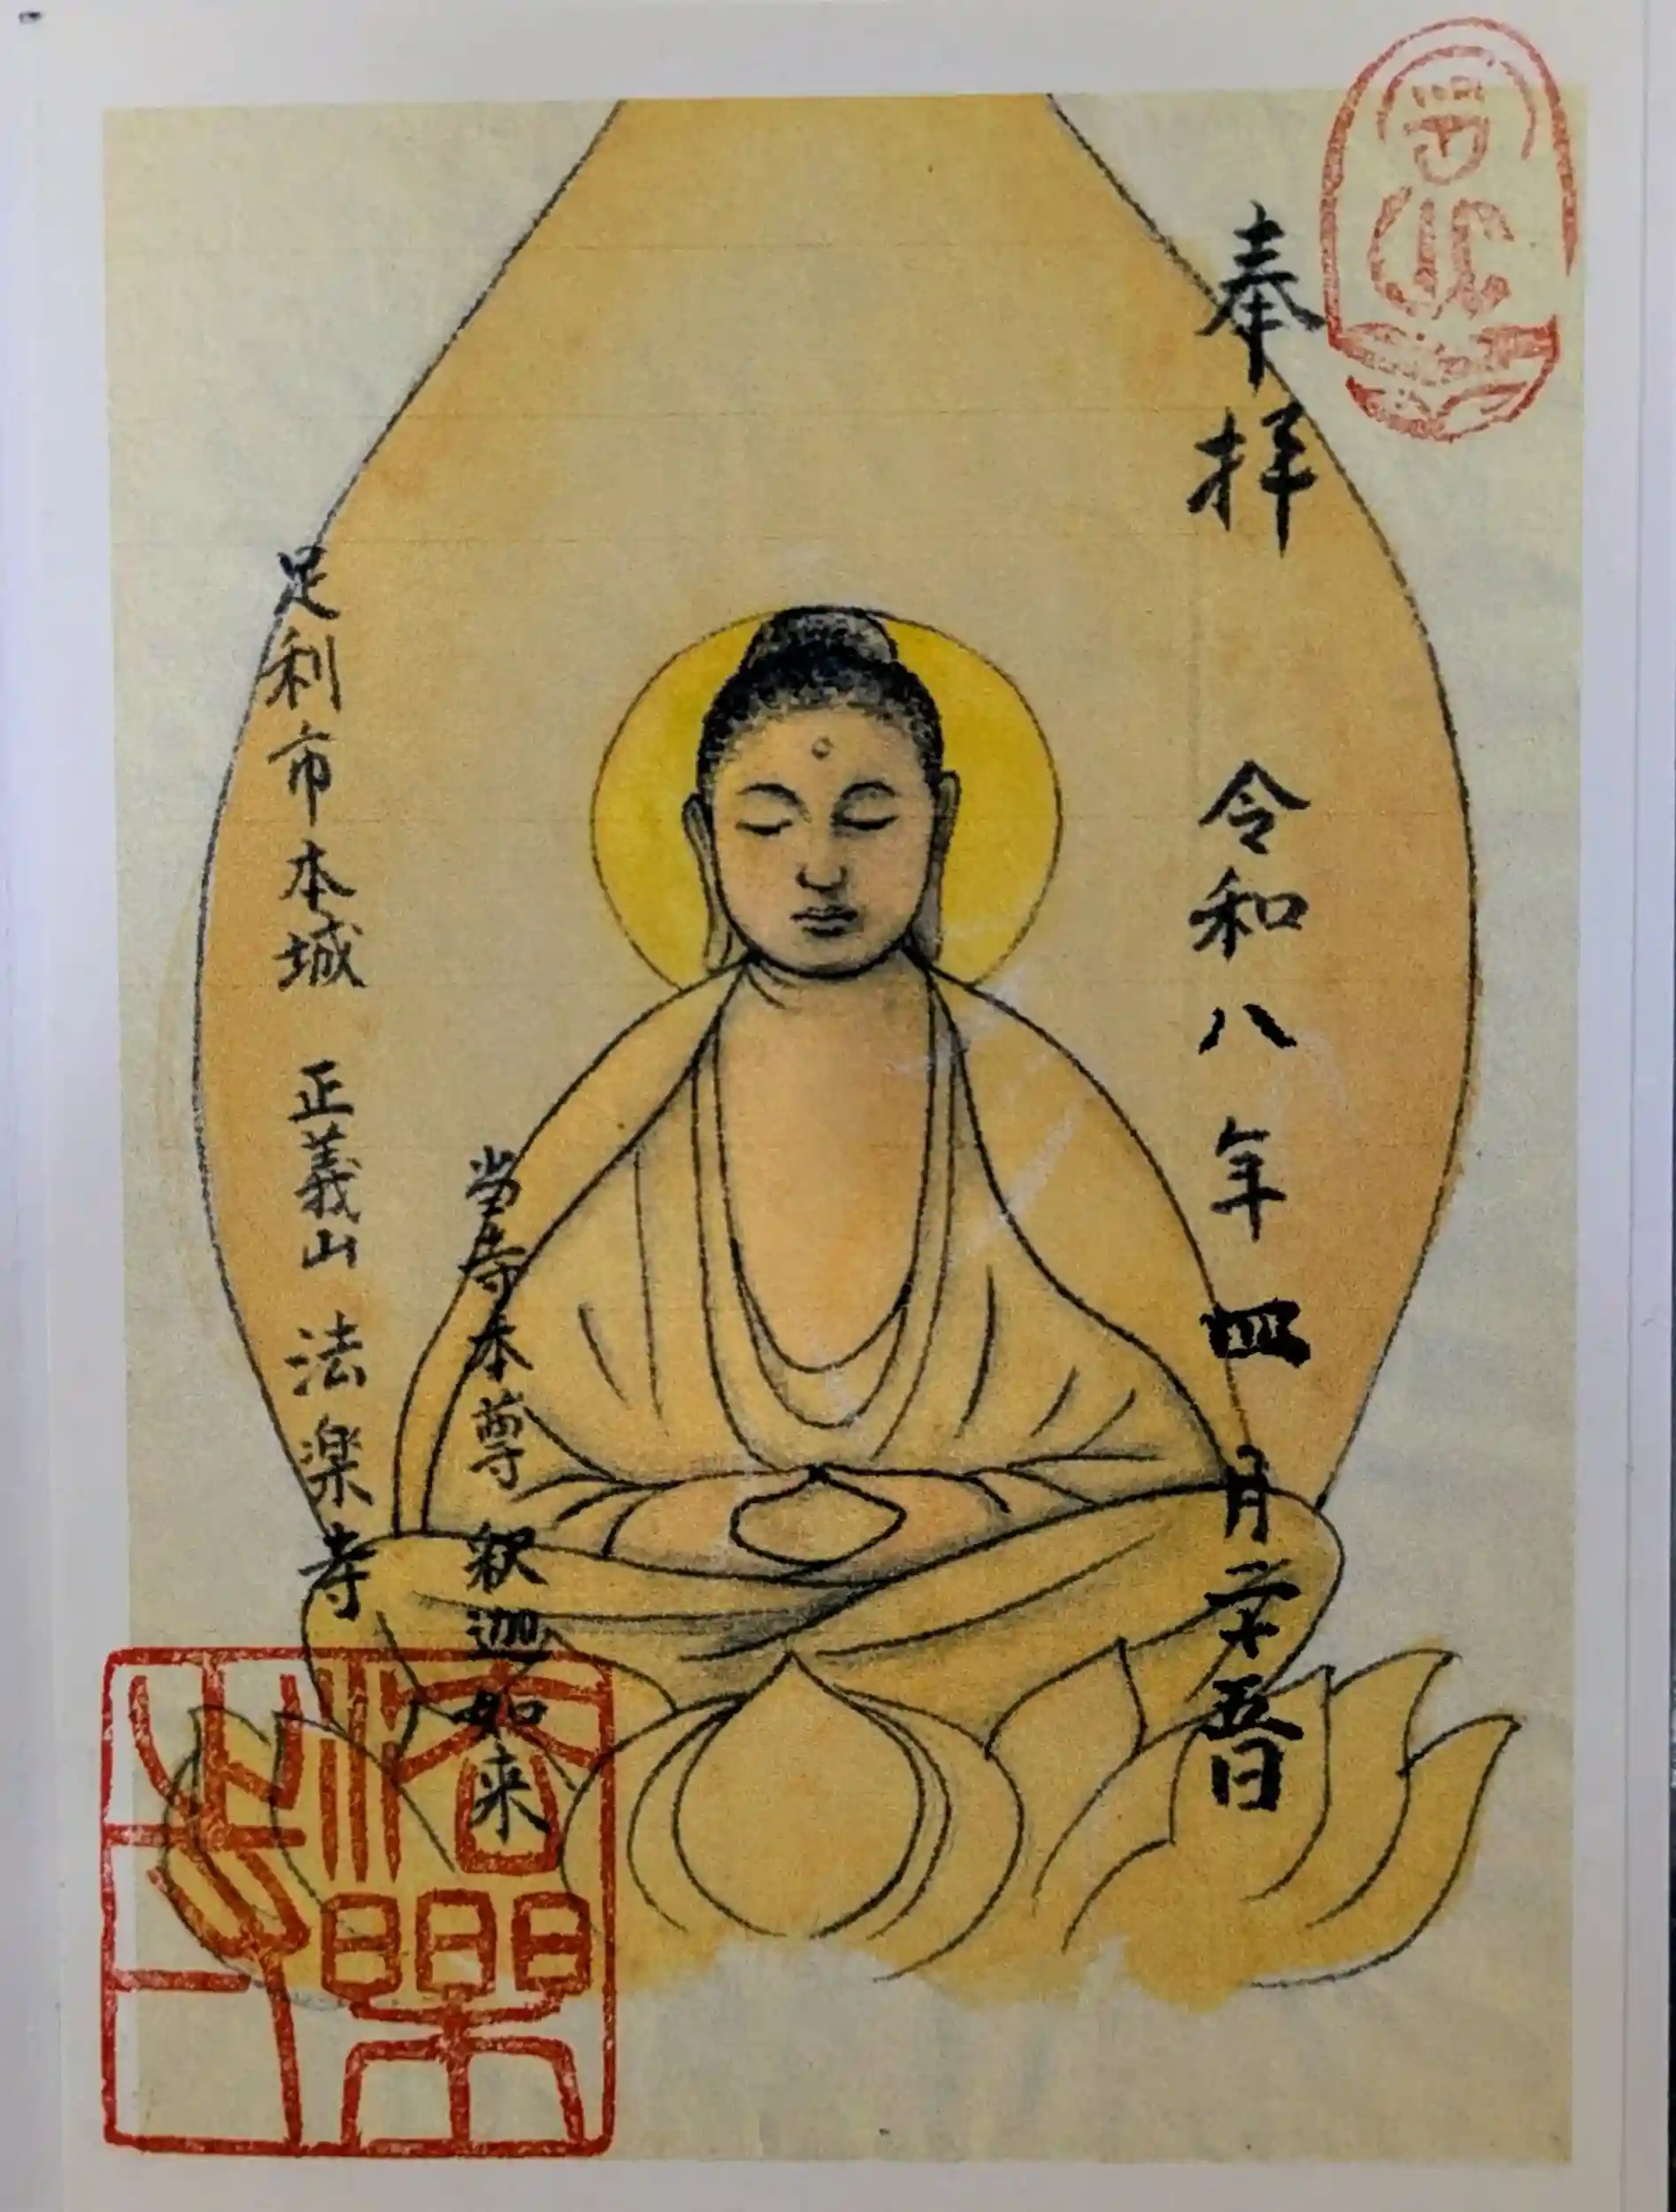 奉拝　令和八年四月二十五日
当寺本尊　釈迦如来
足利市本城　正義山　法楽寺
法樂寺